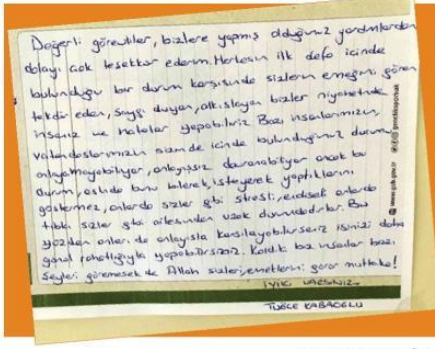 Değerli görevliler, bizlere yapmış olduğunuz yardımlardan
dolayı çok teşekkür ederim. Herkesin ilk defa içinde
bulunduğu bir durum karşısında sizlerin emeğini gören
takdir eden, saygı duyan, alkışlayan bizler nihayetinde
insanız ve hatalar yapabiliriz Bazı insanlarımızın,
vatandaşlarımızın sizinde içinde bulunduğunuz durumu
anlayamayabiliyor, anlayışsız davranabiliyor ancak bu
durum, aslında bunu bilerek, isteyerek yaptıklarını
göstermez, onlarda sizler gibi stresli, endişeli onlarda
tıpkı sizler gibi ailesinden uzak durumdadırlar. Bu
yüzden onları da anlayışla karşılayabilirseniz işinizi daha
gönül rahatlığıyla yapabilirsiniz. Kaldık bazı insanlar bazı
şeyleri göremesek de Allah sizleri, emeklerini görür mutlaka!
İYİKİ VARSINIZ..
TUĞÇE KABAOĞLU
www.gsb.gov.tr
gencliksporbak